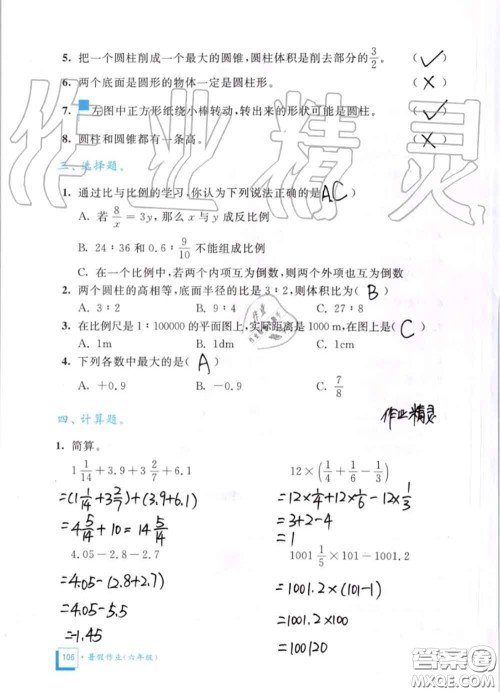 5. 把一个圆柱削成一个最大的圆锥，圆柱体积是削去部分的3/2。 （✓）
6. 两个底面是圆形的物体一定是圆柱形。 （×）
7. 左图中正方形纸绕小棒转动，转出来的形状可能是圆柱。（✓）
8. 圆柱和圆锥都有一条高。 （×）
三、选择题。
1. 通过比与比例的学习，你认为下列说法正确的是（AC）
A. 若8/x＝3y，那么x与y成反比例
B. 24∶36和0.6∶9/10不能组成比例
C. 在一个比例中，若两个内项互为倒数，则两个外项也互为倒数
2. 两个圆柱的高相等，底面半径的比是3∶2，则体积比为（B）
A. 3∶2 B. 9∶4 C. 27∶8
3. 在比例尺是1∶100000的平面图上，实际距离是1000 m，在图上是（C）
A. 1m B. 1dm C. 1cm
4. 下列各数中最大的是（A）
A. ＋0.9 B. －0.9 C. 7/8
作业精灵
四、计算题。
1. 简算。
1 1/14＋3.9＋3 2/7＋6.1 12×(1/4＋1/6－1/3)
=(1 1/14+3 2/7)+(3.9+6.1) =12×1/4+12×1/6-12×1/3
=4 5/14+10=14 5/14 =3+2-4
=1
4.05－2.8－2.7 1001 1/5×101－1001.2
=4.05-(2.8+2.7) =1001.2×(101-1)
=4.05-5.5 =1001.2×100
=-1.45 =100120
106 · 暑假作业（六年级）
作业精灵